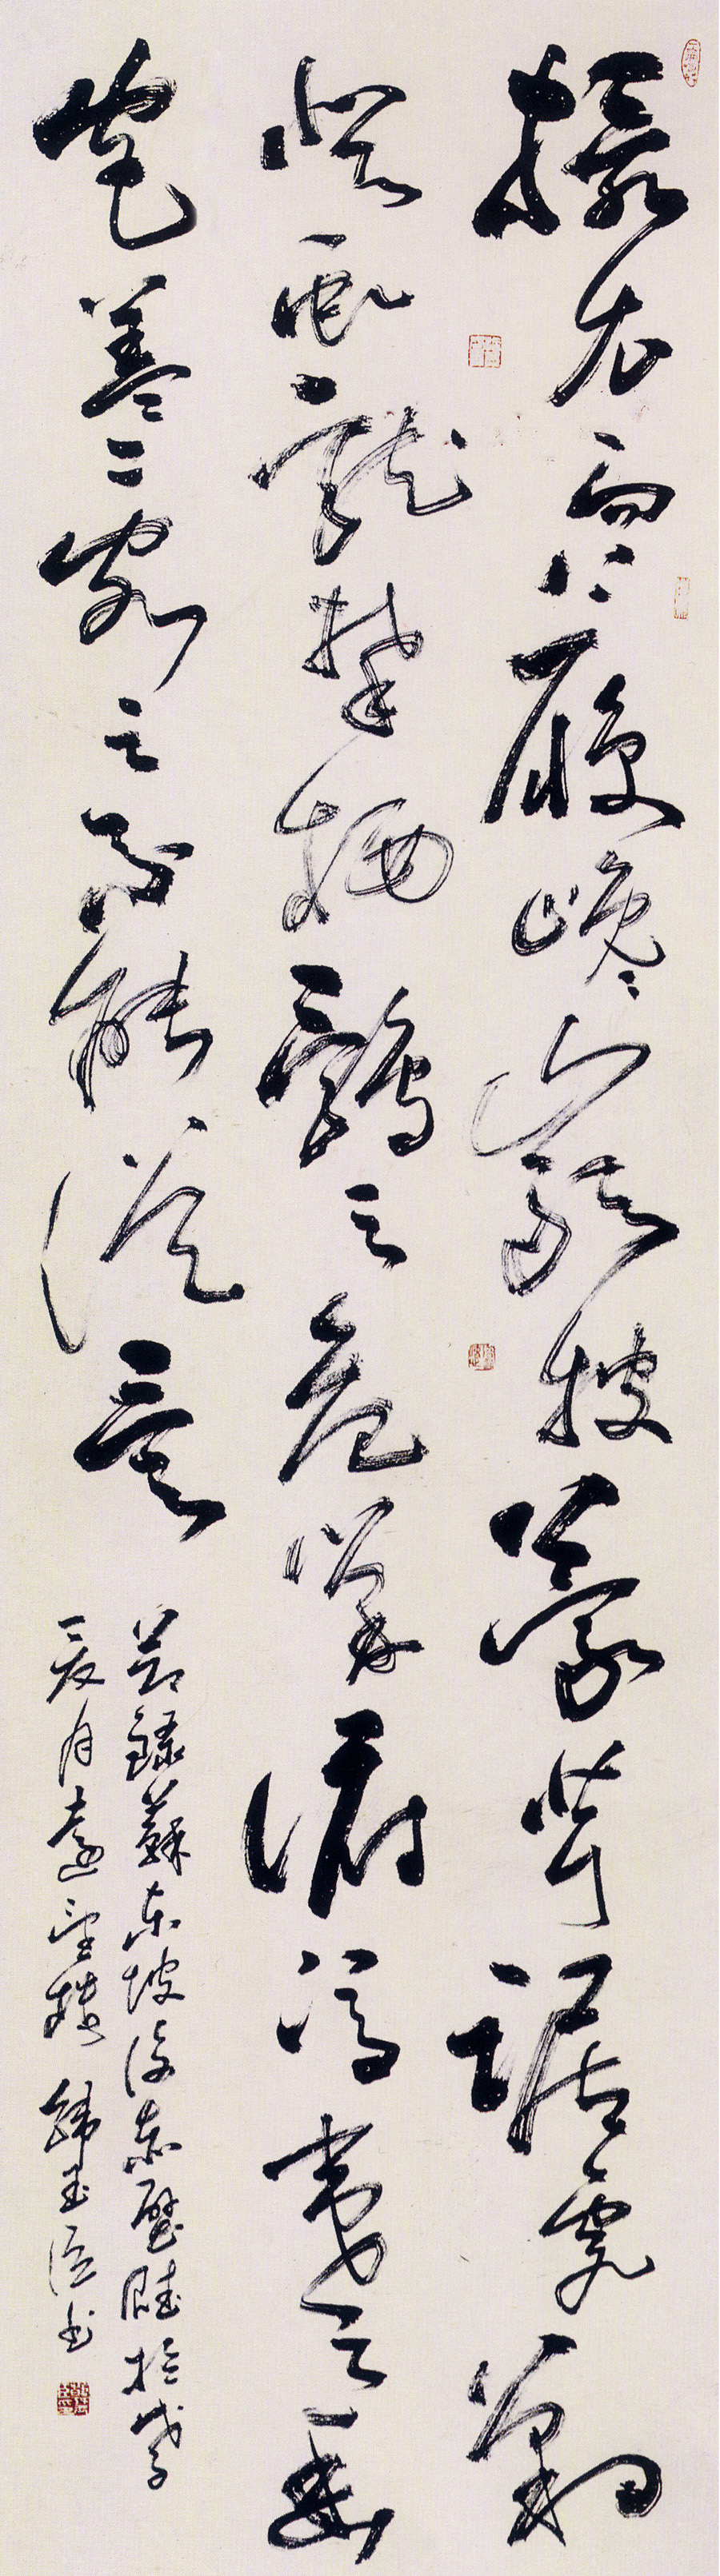 攝衣而上履巉巖披蒙茸踞虎豹
登虬龍攀栖鶻之危巢俯馮夷之幽
宮蓋二客之不能從焉
節錄蘇東坡後赤壁賦於
月遠望樓 韓玉臣書